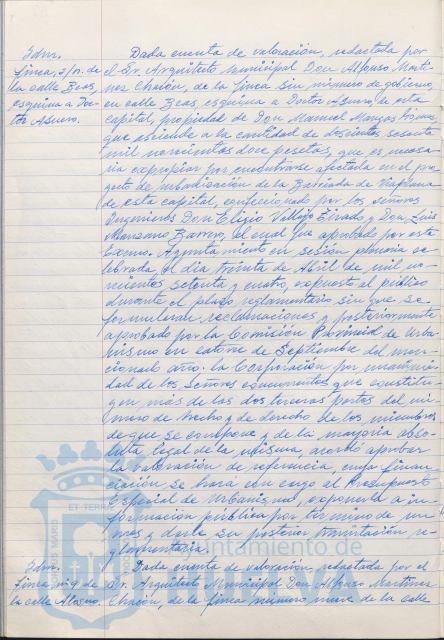 Idm.
finca, s/n. de
la calle Beas,
esquina a Doc-
tor Asuero.
Dada cuenta de valoración, redactada por
el Sr. Arquitecto Municipal Don Alfonso Martí-
nez Chacón, de la finca sin número de gobierno
en calle Beas esquina a Doctor Asuero, de esta
capital, propiedad de Don Manuel Margas
que asciende a la cantidad de doscientas sesenta
mil novecientas doce pesetas, que es necesa-
ria expropiar por encontrarse afectada en el pro-
yecto de urbanización de la Barriada de Viaplana
de esta capital, confeccionado por los señores
Ingenieros Don Eligio Vallejo y Don Luis
Manzano Barrero, el cual fue aprobado por este
Excmo. Ayuntamiento en sesión plenaria ce-
lebrada el día treinta de Abril de mil no-
vecientos setenta y cuatro, expuesto al público
durante el plazo reglamentario sin que se
formularan reclamaciones y posteriormente
aprobado por la Comisión Provincial de Urba-
nismo en catorce de Septiembre del men-
cionado año. La Corporación por unanimi-
dad de los señores concurrentes que constitu-
yen más de las dos terceras partes del nú-
mero de hecho y de derecho de los miembros
de que se compone y de la mayoría abso-
luta legal de la misma, acordó aprobar
la valoración de referencia, cuya finan-
ciación se hará con cargo al Presupuesto
Especial de Urbanismo, exponerla a in-
formación pública por término de un
mes y darle su posterior tramitación re-
glamentaria.
Idm.
finca nº 9 de
la calle Alosno.
Dada cuenta de valoración, redactada por el
Sr. Arquitecto Municipal Don Alfonso Martínez
Chacón, de la finca número nueve de la calle
Ayuntamiento de
HUELVA
ET TERRAE